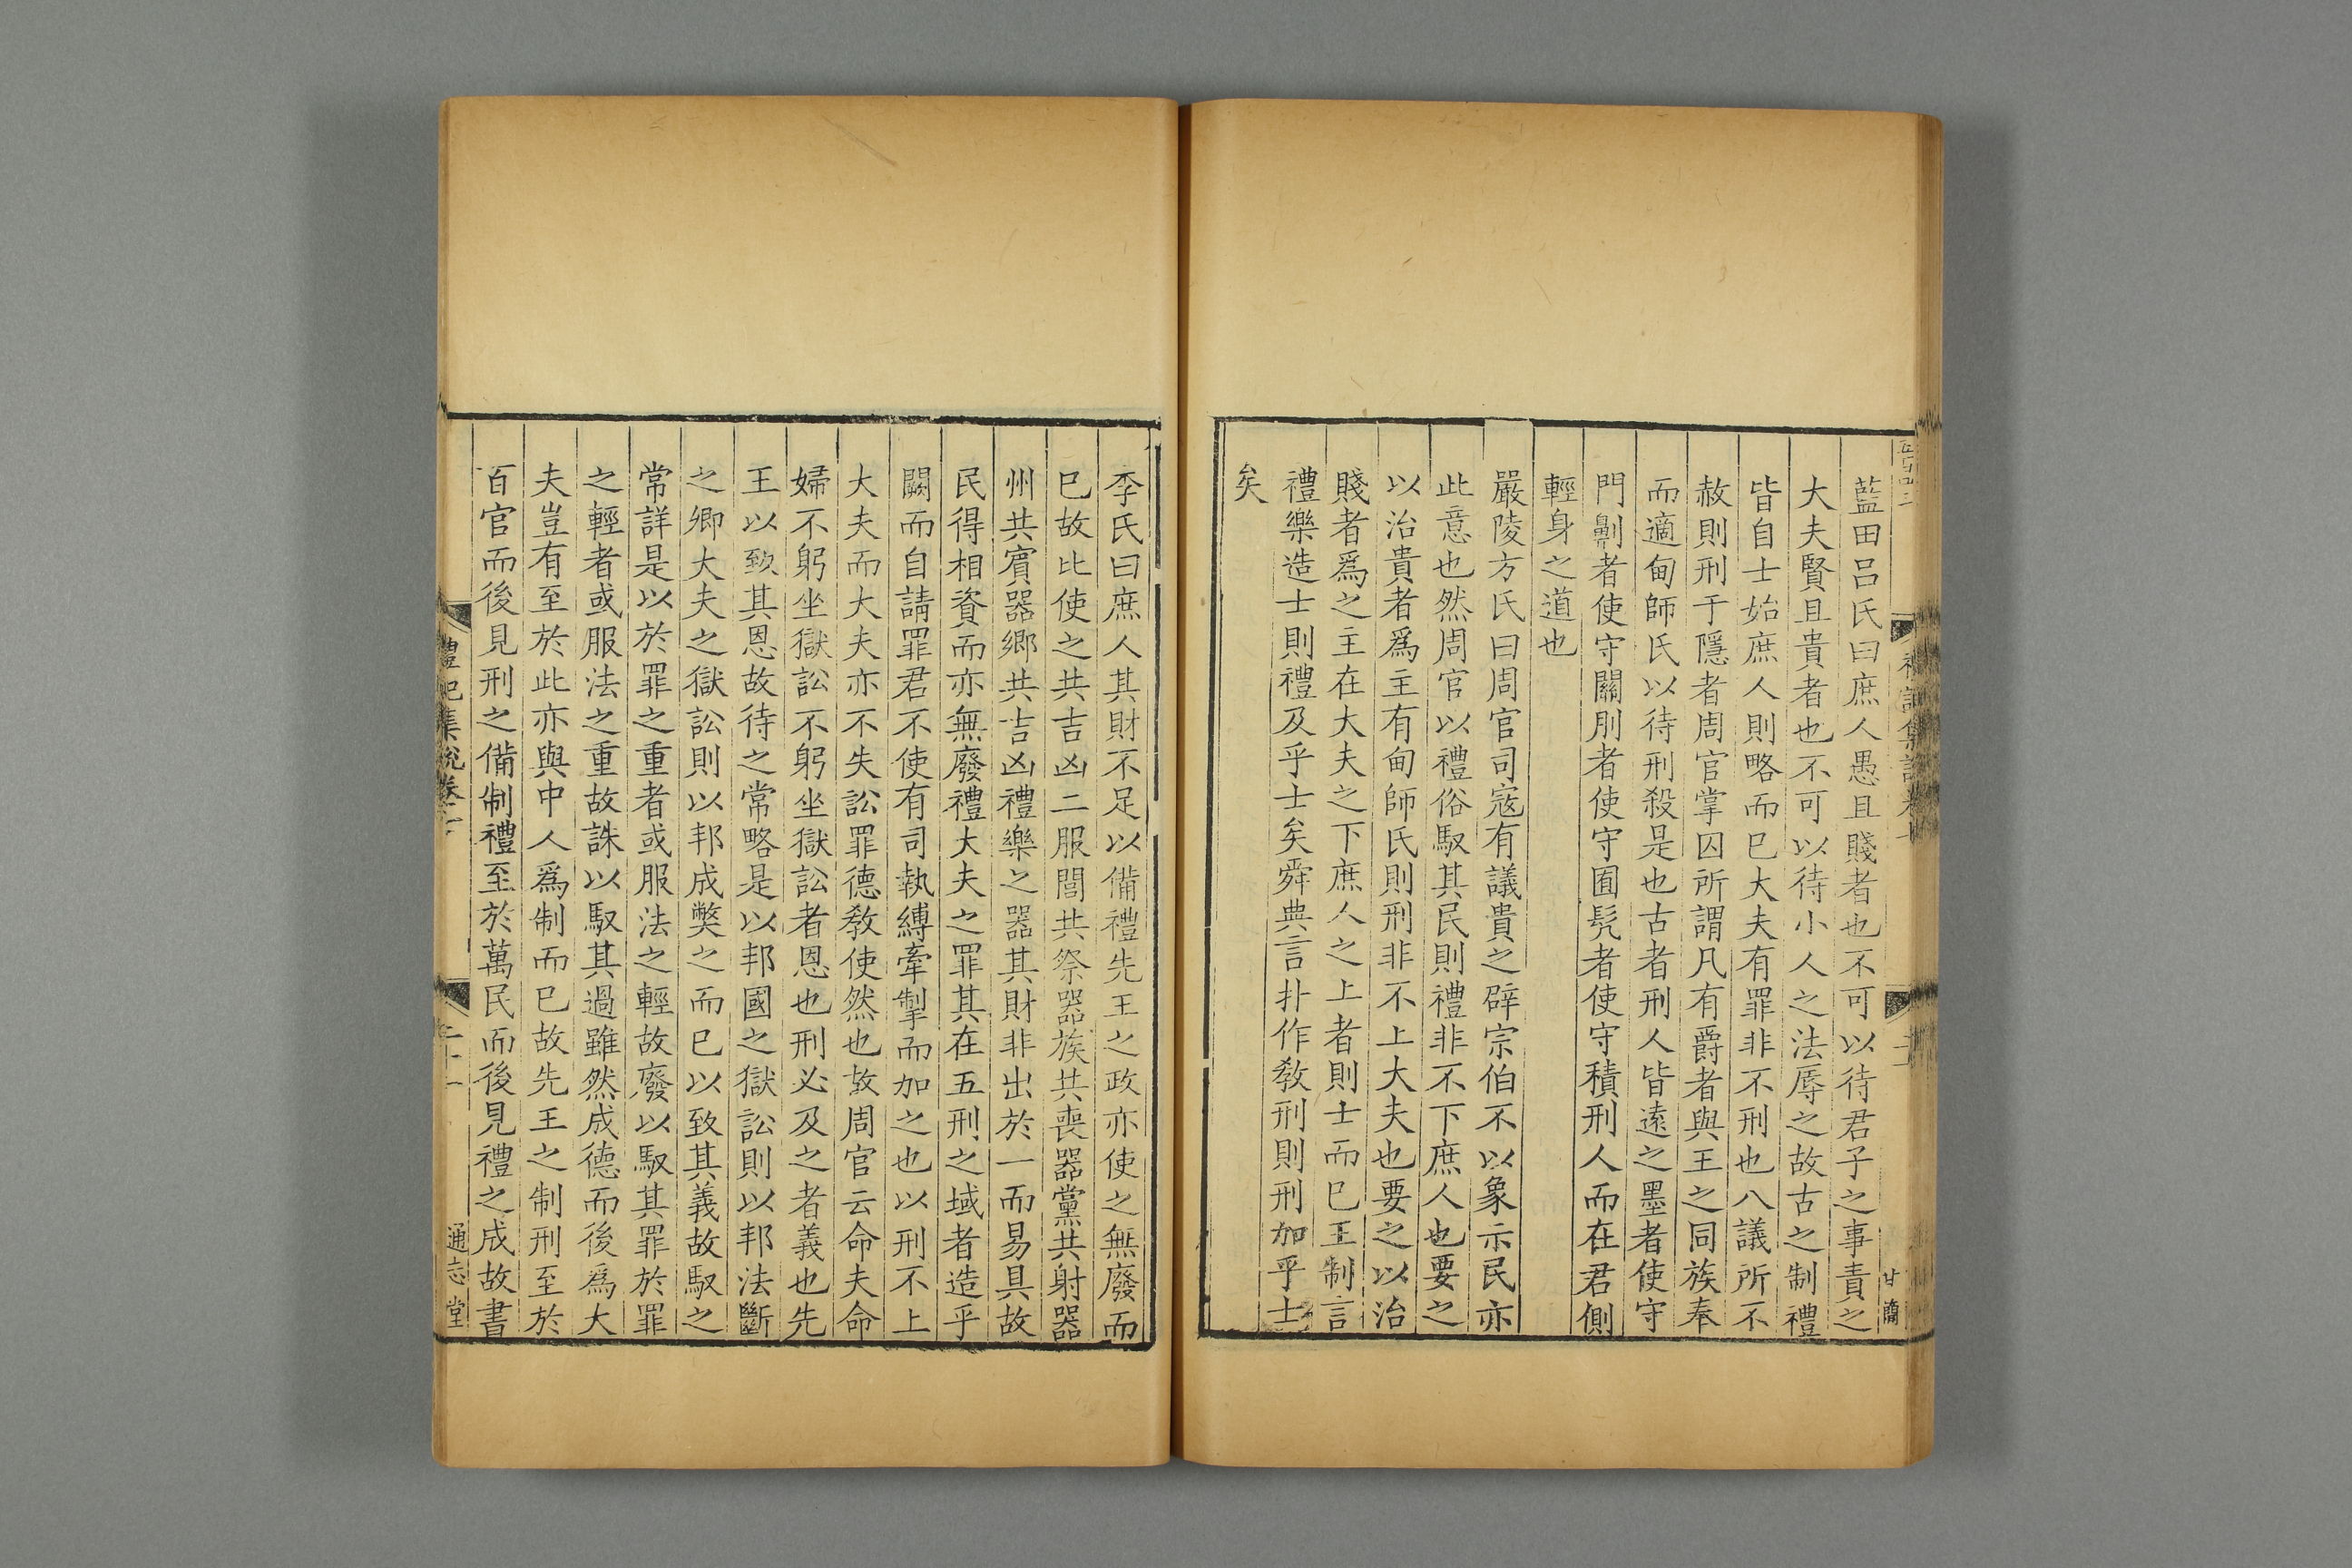 藍田呂氏曰庶人愚且賤者也不可以待君子之事責之
大夫賢且貴者也不可以待小人之法辱之故古之制禮
皆自士始庶人則略而已大夫有罪非不刑也八議所不
赦則刑于隱者周官掌囚所謂凡有爵者與王之同族奉
而適甸師氏以待刑殺是也古者刑人皆遠之墨者使守
門劓者使守關刖者使守囿髡者使守積刑人而在君側
輕身之道也
嚴陵方氏曰周官司寇有議貴之辟宗伯不以象示民亦
此意也然周官以禮俗馭其民則禮非不下庶人也要之
以治貴者爲主有甸師氏則刑非不上大夫也要之以治
賤者爲之主在大夫之下庶人之上者則士而已王制言
禮樂造士則禮及乎士矣舜典言扑作敎刑則刑加乎士
矣
李氏曰庶人其財不足以備禮先王之政亦使之無廢而
已故比使之共吉凶二服閭共祭器族共喪器黨共射器
州共賓器鄉共吉凶禮樂之器其財非出於一而易具故
民得相資而亦無廢禮大夫之罪其在五刑之域者造乎
闕而自請罪君不使有司執縛牽掣而加之也以刑不上
大夫而大夫亦不失訟罪德敎使然也故周官云命夫命
婦不躬坐獄訟不躬坐獄訟者恩也刑必及之者義也先
王以致其恩故待之常略是以邦國之獄訟則以邦法斷
之卿大夫之獄訟則以邦成獘之而已以致其義故馭之
常詳是以於罪之重者或服法之輕故廢以馭其罪於罪
之輕者或服法之重故誅以馭其過雖然成德而後爲大
夫豈有至於此亦與中人爲制而已故先王之制刑至於
百官而後見刑之備制禮至於萬民而後見禮之成故書
禮記集說卷
二十一
通志堂